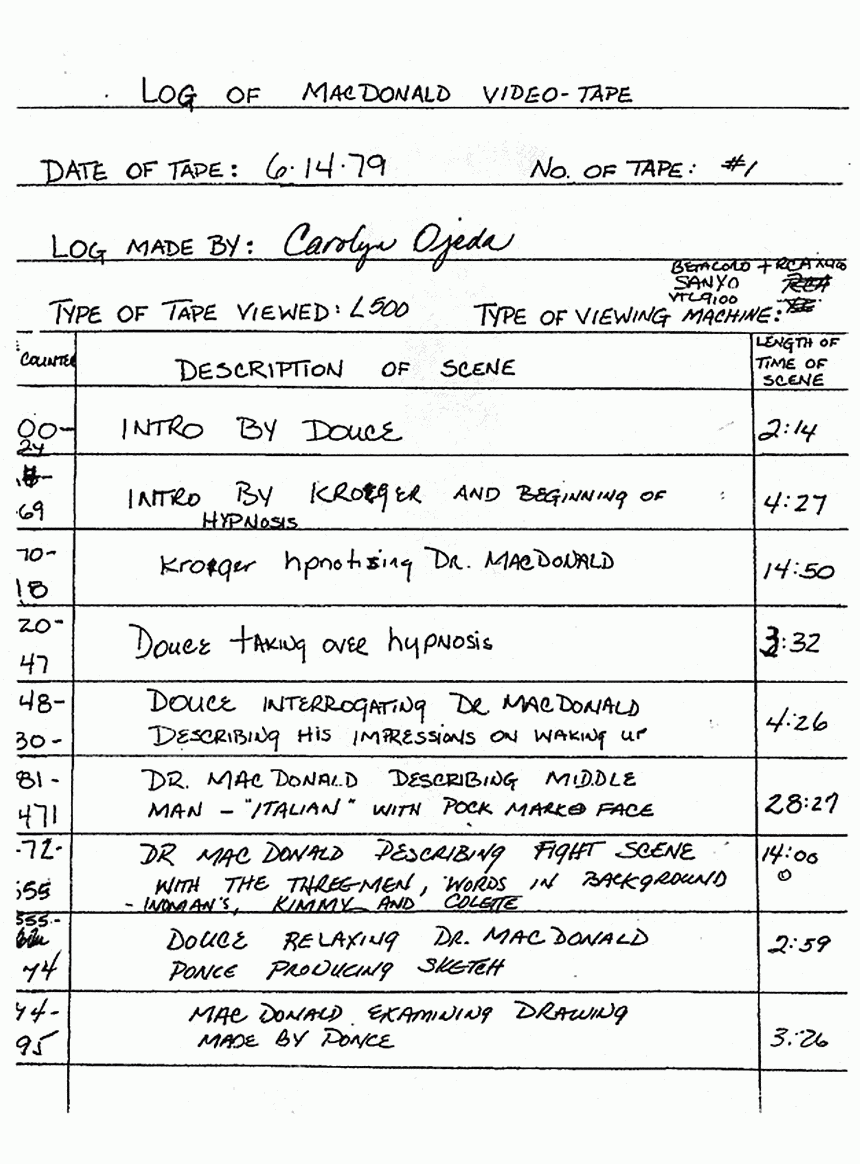 LOG OF MACDONALD VIDEO-TAPE
DATE OF TAPE: 6·14·79 NO. OF TAPE: #1
LOG MADE BY: Carolyn Ojeda
BETACORD + RCA X400
SANYO RCA
VTC9100
TYPE OF TAPE VIEWED: L500 TYPE OF VIEWING MACHINE:
COUNTER DESCRIPTION OF SCENE LENGTH OF
TIME OF
SCENE
00- INTRO BY DOUCE 2:14
24
INTRO BY KROEGER AND BEGINNING OF 4:27
69 HYPNOSIS
70- Kroeger hpnotising DR. MACDONALD 14:50
18
20- DOUCE TAKING OVER hypNOSIS 3:32
47
48- DOUCE INTERROGATING DR MACDONALD 4:26
30- DESCRIBING HIS IMPRESSIONS ON WAKING UP
81- DR. MAC DONALD DESCRIBING MIDDLE 28:27
471 MAN - "ITALIAN" WITH POCK MARKED FACE
-72- DR MAC DONALD DESCRIBING FIGHT SCENE 14:00
555 WITH THE THREE MEN, WORDS IN BACKGROUND 0
- WOMAN'S, KIMMY AND COLETTE
555- DOUCE RELAXING DR. MACDONALD 2:59
74 PONCE PRODUCING SKETCH
74- MAC DONALD EXAMINING DRAWING 3:26
95 MADE BY PONCE